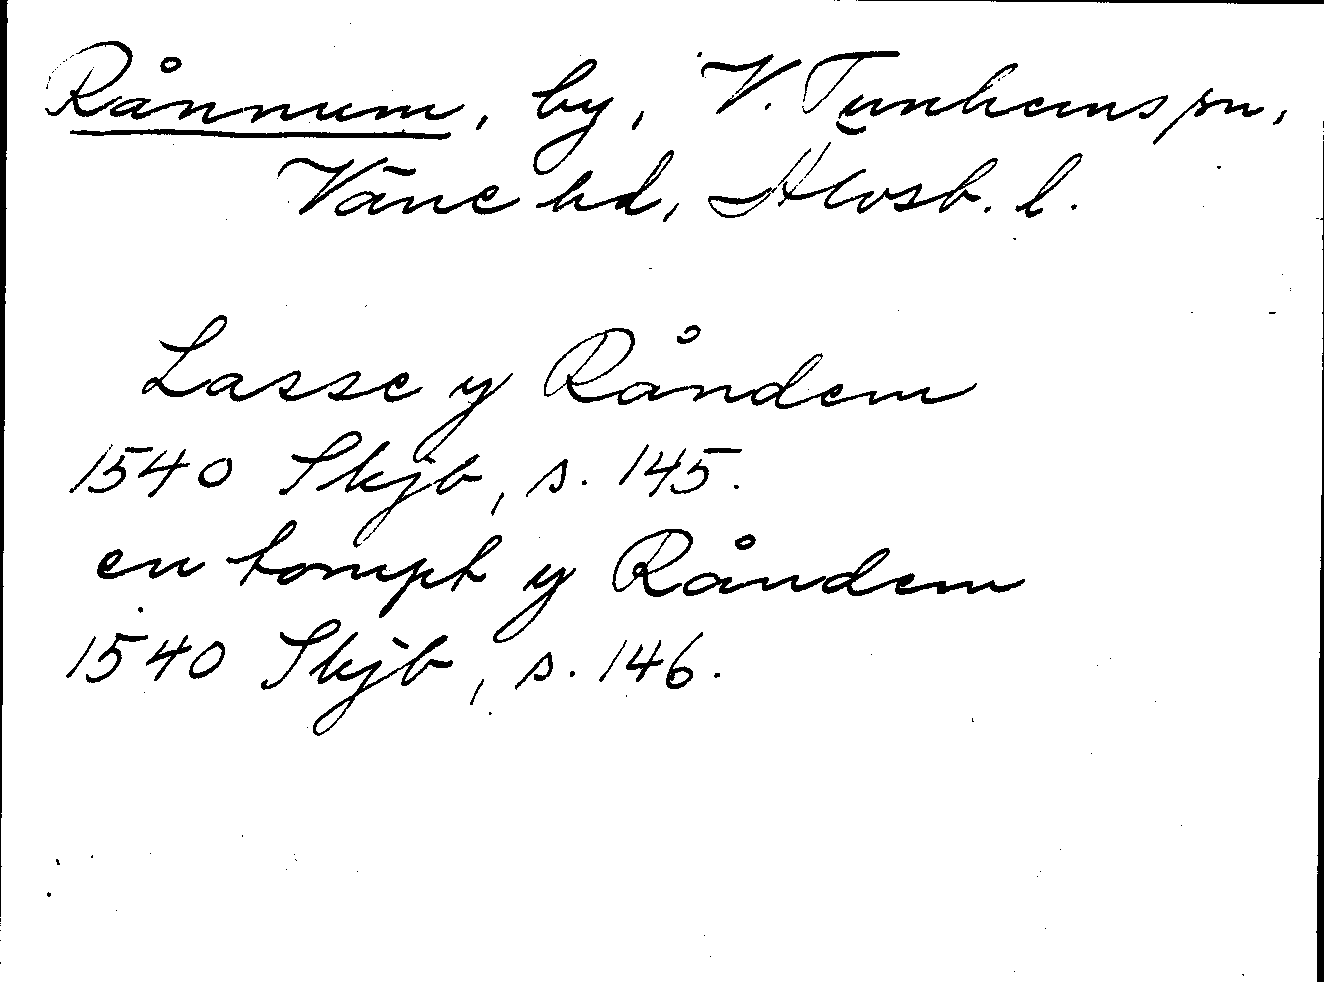 Rånnum, by, V. Tunhems sn,
Väne hd, Älvsb. l.
Lasse y Råndem
1540 Skjb, s. 145.
en tompt y Råndem
1540 Skjb, s. 146.